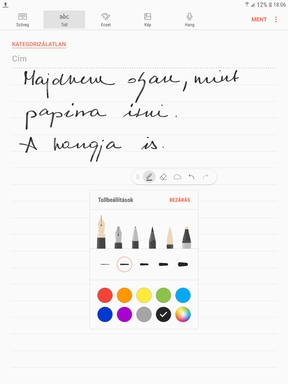 12% 18:06
Szöveg abc Toll Ecset Kép Hang MENT
KATEGORIZÁLATLAN
Cím
Majdnem olyan, mint
papírra írni.
A hangja is.
Tollbeállítások BEZÁRÁS